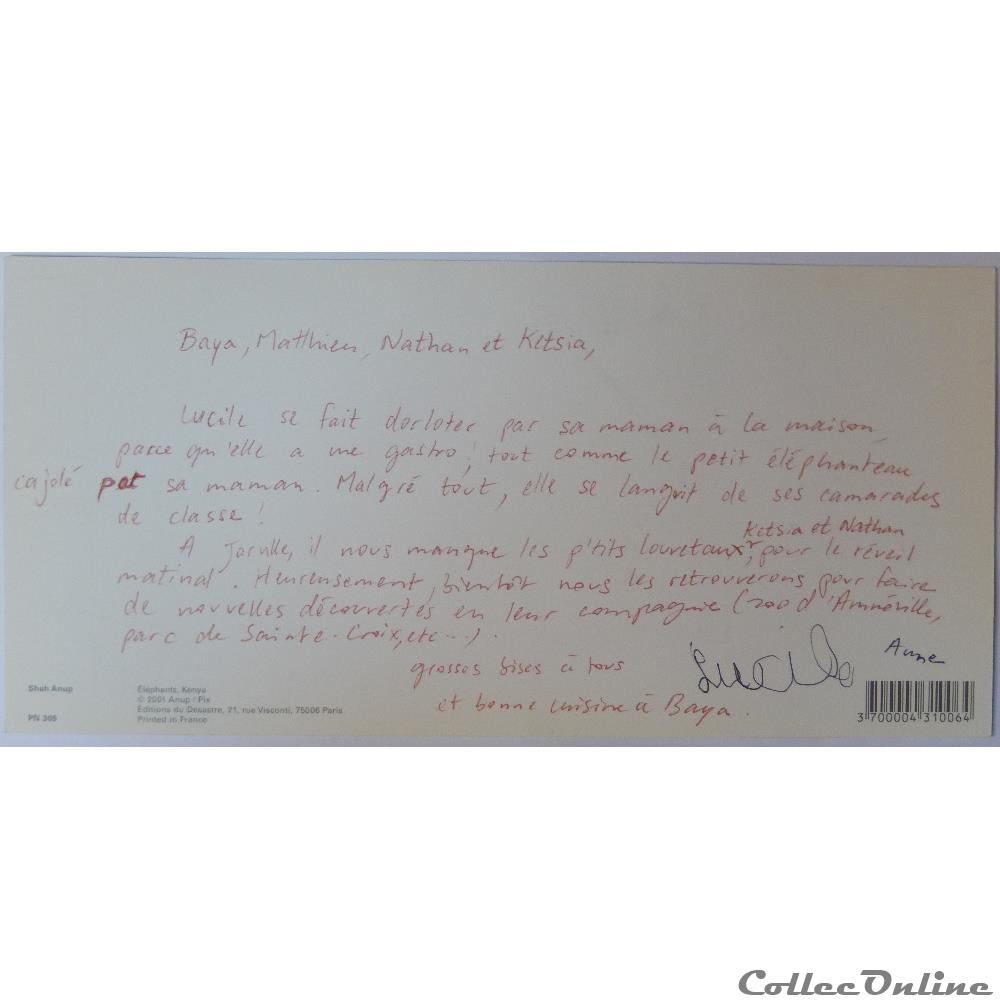 Baya, Matthieu, Nathan et Ketsia,
Lucile se fait dorloter par sa maman à la maison
parce qu'elle a une gastro ; tout comme le petit éléphanteau
cajolé par sa maman. Malgré tout, elle se languit de ses camarades
de classe !
Ketsia et Nathan
A Jarville, il nous manque les p'tits louvetaux, pour le réveil
matinal. Heureusement, bientôt nous les retrouverons pour faire
de nouvelles découvertes en leur compagnie (zoo d'Amnéville,
parc de Sainte-Croix, etc...).
grosses bises à tous
et bonne cuisine à Baya.
Lucile
Anne
Shah Anup
PN 305
Éléphants, Kenya
© 2001 Anup / Pix
Éditions du Désastre, 21, rue Visconti, 75006 Paris
Printed in France
3 700004 310064
CollecOnline